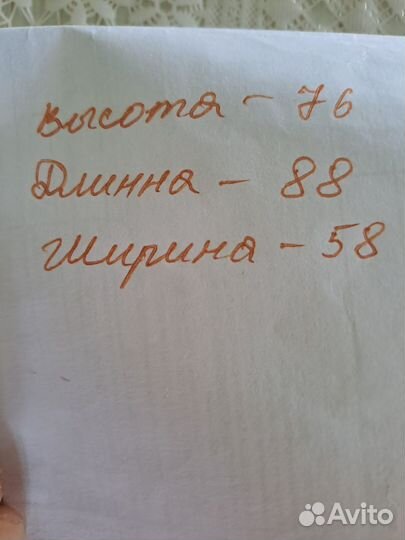 Высота - 76
Длинна - 88
Ширина - 58
Avito